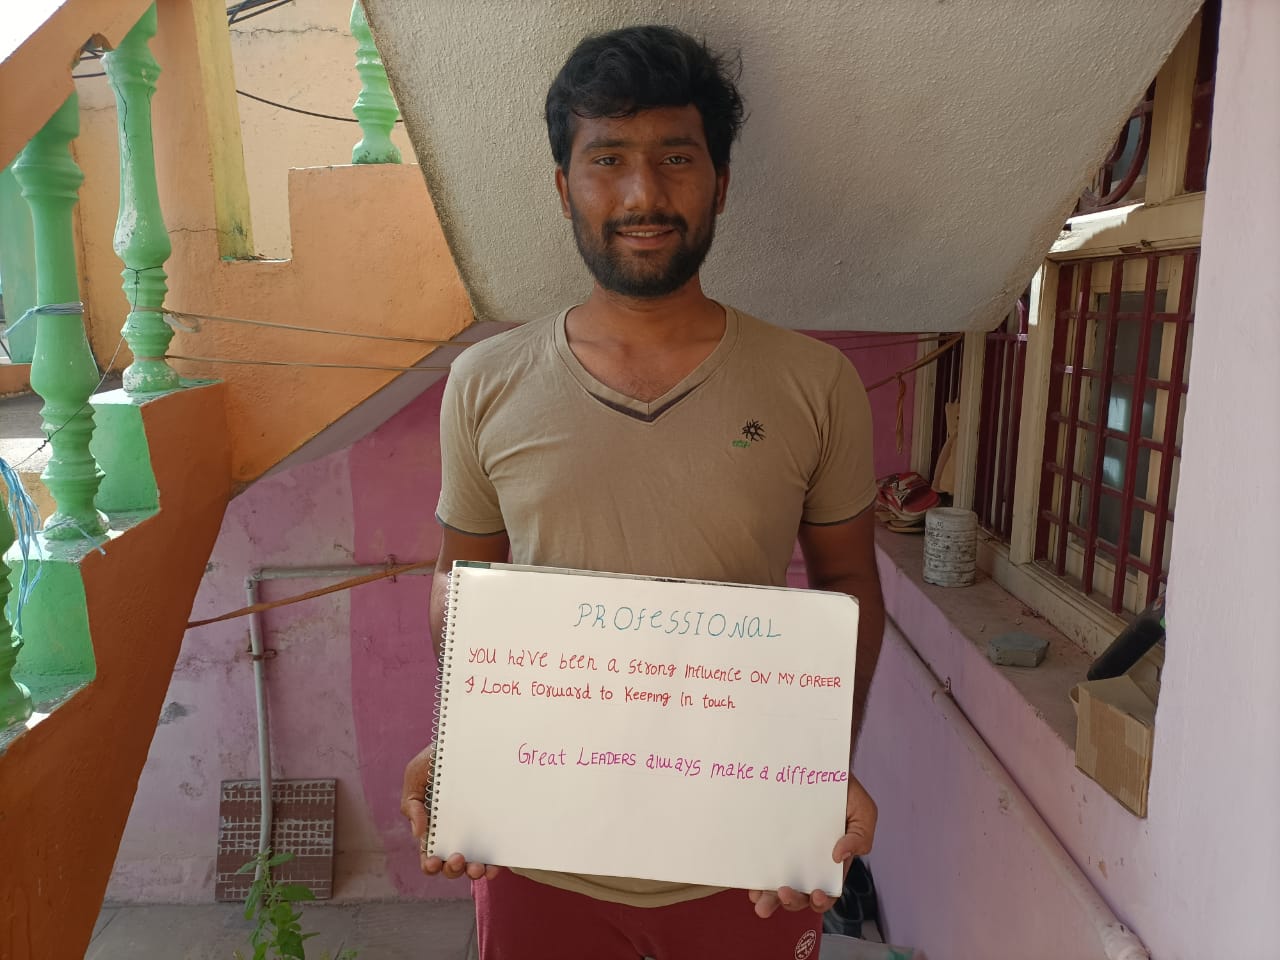 PROfESSIONAL
YOU hAVE been a strong Influence ON MY CAREER
I LOOK forward to keePing In touch
Great LEADERS always make a difference